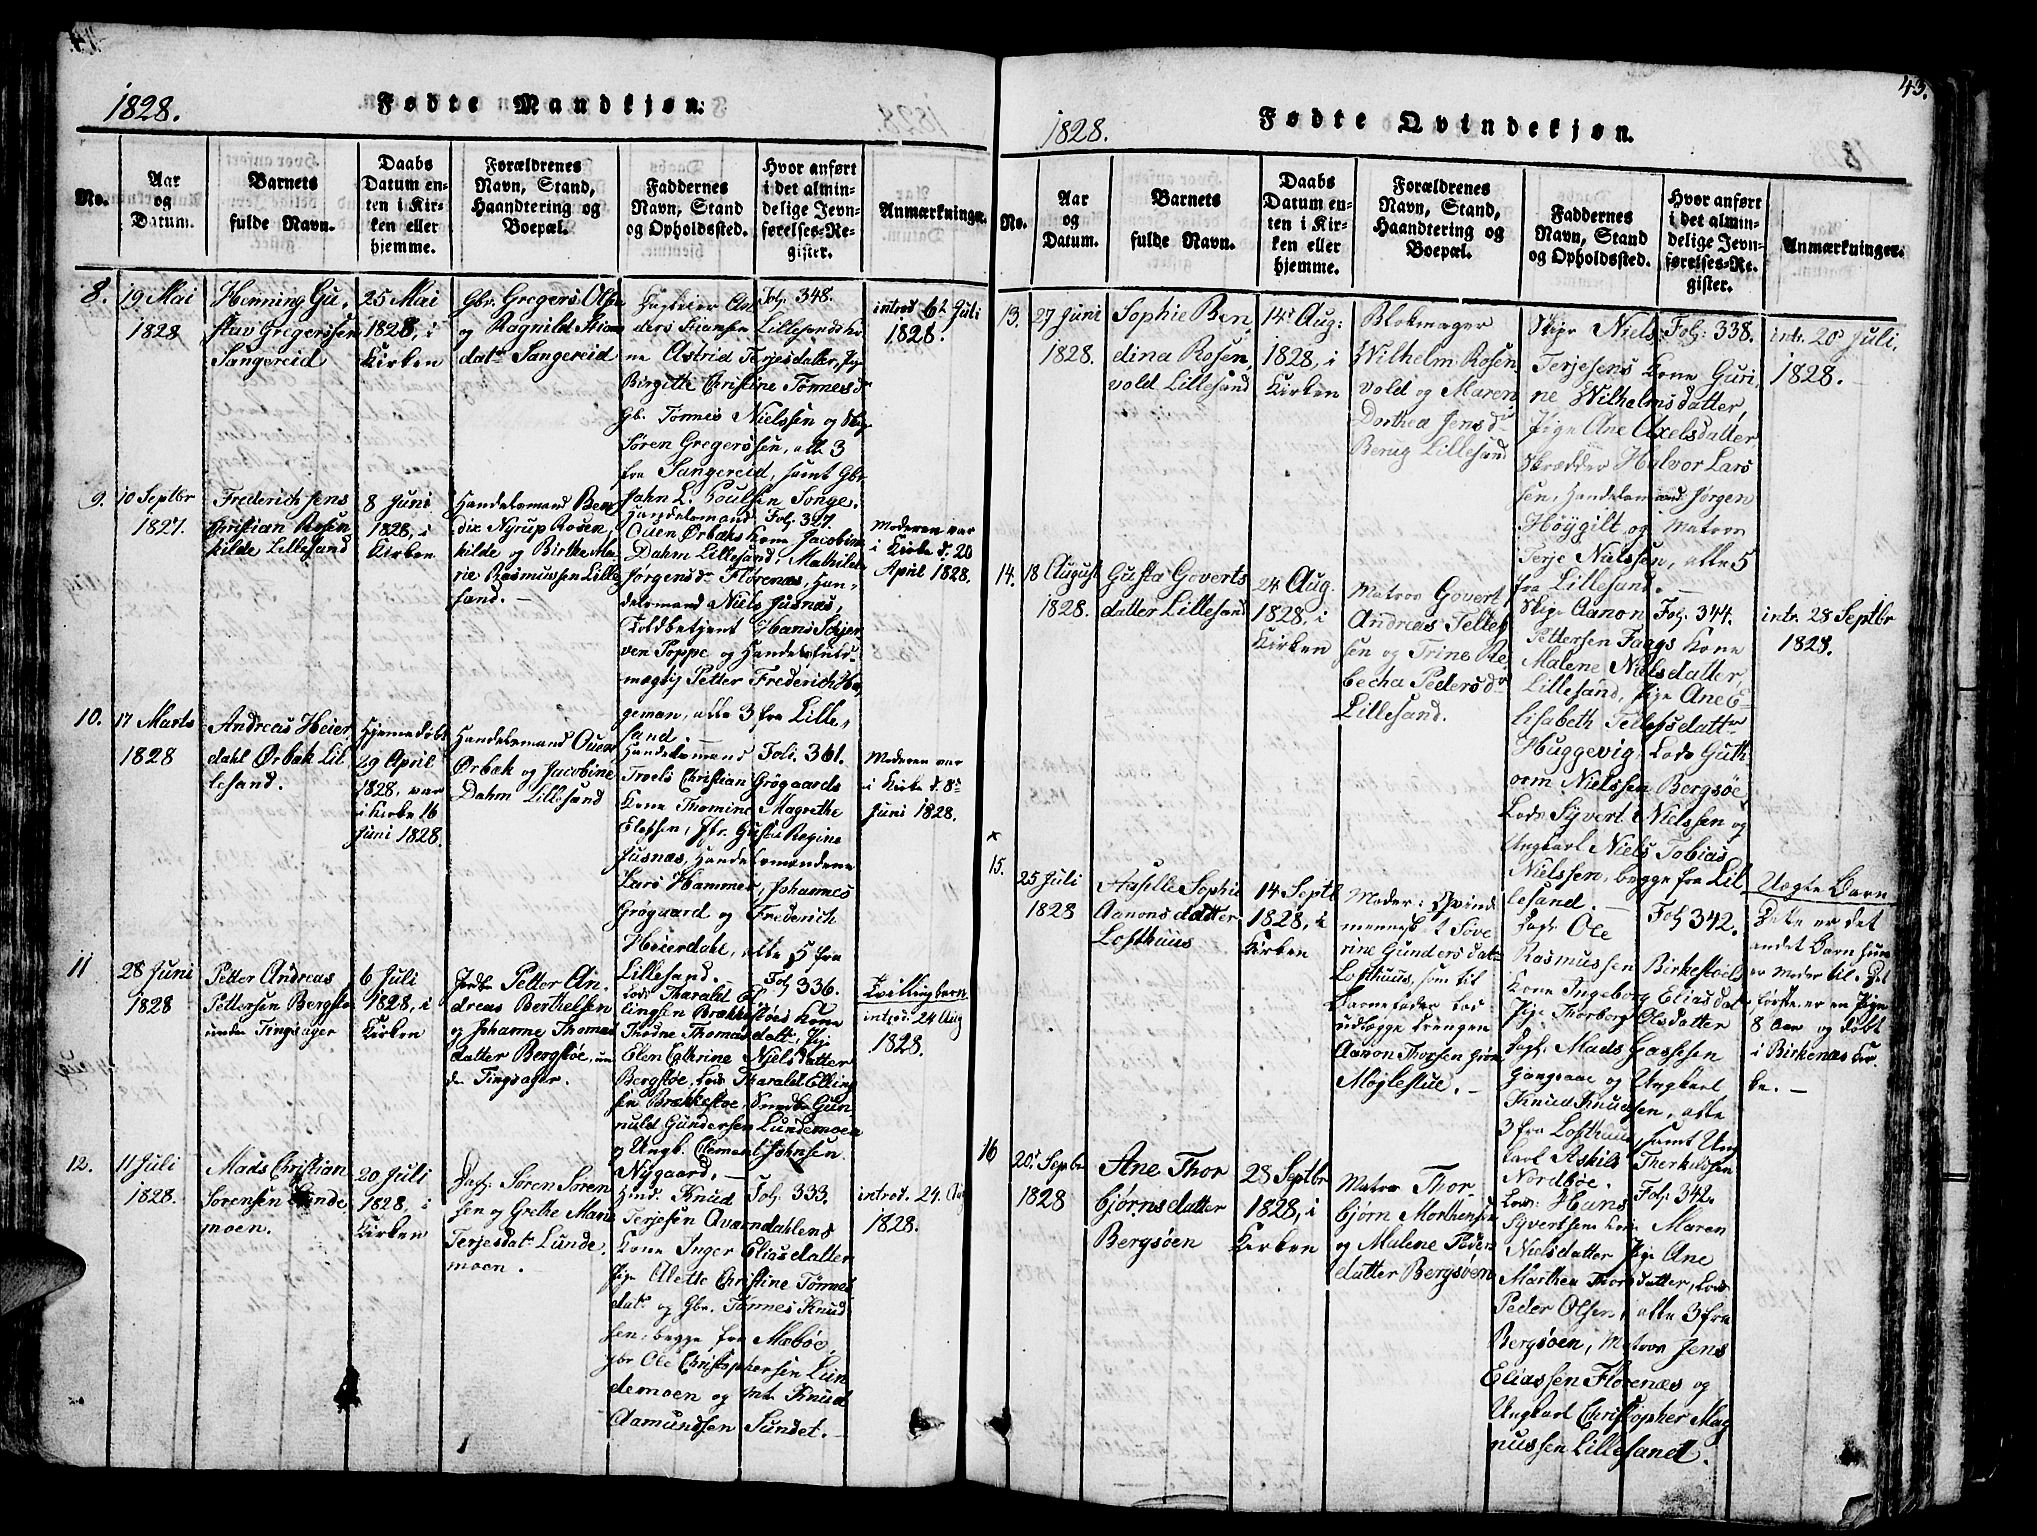 1828.
Fødte Mandkjøn.
No.
Aar
og
Datum.
Barnets
fulde Navn.
Daabs
Datum en-
ten i Kir-
ken eller
hjemme.
Forældrenes
Navn, Stand,
Haandtering og
Boepæl.
Faddernes
Navn, Stand
og Opholdssted.
Hvor anført
i det almin-
delige Jevn-
førelses-Re-
gister.
Anmærkninger.
8.
19 Mai
1828
Henning Gu-
stav Gregerssen
Sangereid
25 Mai
1828, i
Kirken
Gbr. Gregers Olsen
og Ragnild
datr Sangereid
Lillesands Ko-
ne Astrid Terjesdatter, Pige
Birgithe Christine Tønnesdr
Gb. Tønnes Nielssen og
Søren Gregerssen, alle 3
fra Sangereid, samt Gbr
John L. Poulsen Songe.
Fol. 348.
introd. 6te Juli
1828.
9.
10 Septbr
1827.
Frederich Jens
Christian Rosen
kilde Lillesand
8 Juni
1828, i
Kirken
Handelsmand Ben
dix Nyrup Rosen,
kilde og Birthe Ma
rie Rasmussen Lille
sand.
Handelsmand
Ouen Ørbæks Kone Jacobine
Dahm Lillesand, Mathilde
Jørgensdr Florenæs, Han-
delsmand Niels Jusnæs,
Toldbetjent Hans Schjer
ven Poppe og Handelsfuld-
mægtig Petter Frederich Ha,
geman, alle 3 fra Lille,
sand
Fol. 327.
Moderen var
i Kirke d. 20
April 1828.
10.
17 Marts
1828
Andreas Heier
dahl Ørbæk Lil
lesand.
Hjemmedøbt
29 April
1828, var
i Kirke 16
Juni 1828.
Handelsmand Ouen
Ørbæk og Jacobine
Dahm Lillesand
Handelsmand
Troels Christian Grøgaards
Kone Thomine Magrethe
Elefsen, Jfr. Gusta Regine
Jusnæs, Handelsmændene
Lars Hammer, Johannes
Grøgaard og Frederich
Heierdahl, alle 5 fra
Lillesand.
Fol. 361.
Moderen var
i Kirke d. 8de
Juni 1828.
11
28 Juni
1828
Petter Andreas
Pettersen Bergstø
under Tingsager
6 Juli
1828, i
Kirken
Petter An
dreas Berthelsen
og Johanne Thomas
datter Bergstøe, un
der Tingsager.
Lods Tharald El
lingsen Brækkestøes Kone
Thomasdatr, Pige
Elen Cathrine Nielsdatter
Bergstøe, Lods Tharald Elling
sen Brækkestøe, Gun
nuld Gundersen Lundemoen
og Ungk. Clement Johnsen
Nygaard.
Fol. 336.
Tvillingbarn
introd. 24 Aug
1828.
12.
11 Juli
1828.
Mads Christian
Sørensen Lunde
moen.
20 Juli
1828, i
Kirken
Søren Søren
sen og Grethe Marie
Terjesdatr Lunde,
moen.
Knud
Terjesen Qværndahlens
Kone Inger Eliasdatter
Pige Alette Christine Tønnes
datr og Gbr. Tønnes Knud
sen, begge fra Mæbøe,
gbr Ole Christophersen Lun
demoen og Knud
Aamundsen Sundet.
Fol. 333.
introd. 24. Aug
1828.
43.
1828.
Fødte Qvindekjøn.
No.
Aar
og
Datum.
Barnets
fulde Navn.
Daabs
Datum en-
ten i Kir-
ken eller
hjemme.
Forældrenes
Navn, Stand,
Haandtering og
Boepæl.
Faddernes
Navn, Stand
og Opholdssted.
Hvor anført
i det almin-
delige Jevn-
førelses-Re-
gister.
Anmærkninger.
13.
27 Juni
1828.
Sophie Ben,
dina Rosen,
vold Lillesand
Aug:
1828, i
Kirken
Blokmager
Wilhelm Rosen
vold og Maren
Dorthea Jensdr
Berug Lillesand
Skipr Niels
Terjesens Kone Guri,
ne Wilhelmsdatter,
Pige Ane Axelsdatter
Skrædder Halvor Lars
sen, Handelsmand Jørgen
Høygilt og Matros
Terje Nielssen, alle 5
fra Lillesand.
Fol: 338.
intr. 20de Juli.
1828.
14.
18 August
1828.
Gusta Goverts
datter Lillesand
24 Aug.
1828, i
Kirken
Matros Govert
Andreas Tellef
sen og Trine Re
becha Pedersdr
Lillesand.
Skipr Aanon
Pettersen Faags Kone
Malene Nielsdatter
Lillesand, Pige Ane E-
lisabeth Tellefsdattr
Huggevig, Lods Guth
orm Nielssen Bergsøe,
Lods Syvert Nielssen og
Ungkarl Niels Tobias
Nielssen, begge fra Lil
lesand.
Fol. 344.
intr. 28 Septbr
1828.
15.
25 Juli
1828
Aaselle Sophie
Aanonsdatter
Lofthuus
14 Septb
1828, i
Kirken
Moder: Qvinde
mennesket Søve
rine Gundersdatr
Lofthuus, som til
Barnefader har
udlagt Drengen
Aanon Thorsen
Møglestue.
Ole
Rasmussen Birkestøels
Kone Ingeborg Eliasdatr
Pige Thorborg Olsdatter
Mads Gassesen
Gangsaae og Ungkarl
Knud Knudsen, alle
3 fra Lofthuus, samt Ung
karl Askild Therkildsen
Nordbøe.
Fol 342.
Uægte Barn
Dette er det
andet Barn hun
er Moder til. Det
første er en Pige
8 Aar og døbt
i Birkenæs Kir
ke.
16
20de Septbr
1828
Ane Thor
bjørnsdatter
Bergsøen
28 Septbr
1828, i
Kirken
Matros Thor
bjørn Morthensen
og Malene
datter Bergsøen
Lods Hans
Syvertsens Kone Maren
Nielsdatter Pige Ane
Marthea Thorsdatter, Lods
Peder Olsen, alle 3 fra
Bergsøen, Matros Jens
Eliassen Florenæs og
Ungkarl Christopher Mag
nussen Lillesand.
Fol. 342.